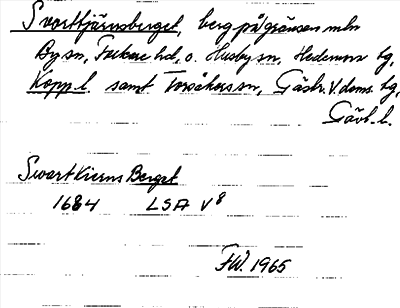 Svarttjärnsberget, berg på gränsen mln
By sn, Folkare hd, o. Husby sn, Hedemora tg,
Kopp. l. samt Torsåkers sn, Gästr. V. doms. tg,
Gävl. l.
Swart Kierns Berget
1684 LSA V 8
FW. 1965